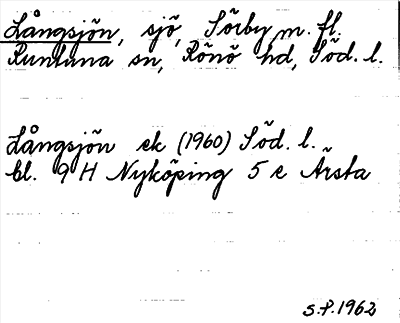 Långsjön, sjö, Sörby m. fl.
Runtuna sn, Rönö hd, Söd. l.
Långsjön ek (1960) Söd. l.
bl. 9 H Nyköping 5 e Årsta
S.P. 1962